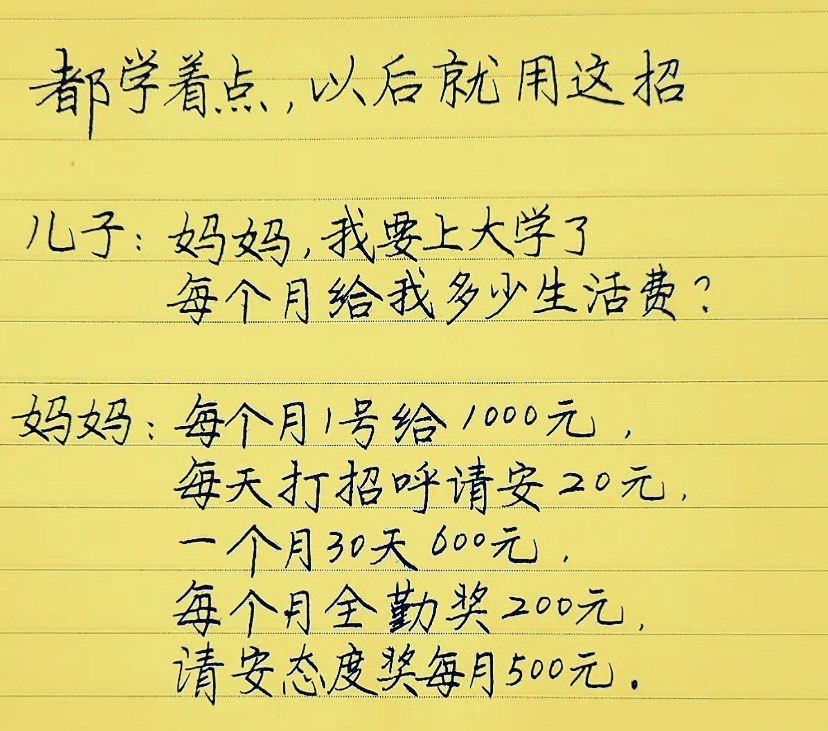 都学着点,以后就用这招
儿子:妈妈,我要上大学了
每个月给我多少生活费?
妈妈:每个月1号给1000元,
每天打招呼请安20元,
一个月30天600元,
每个月全勤奖200元,
请安态度奖每月500元.